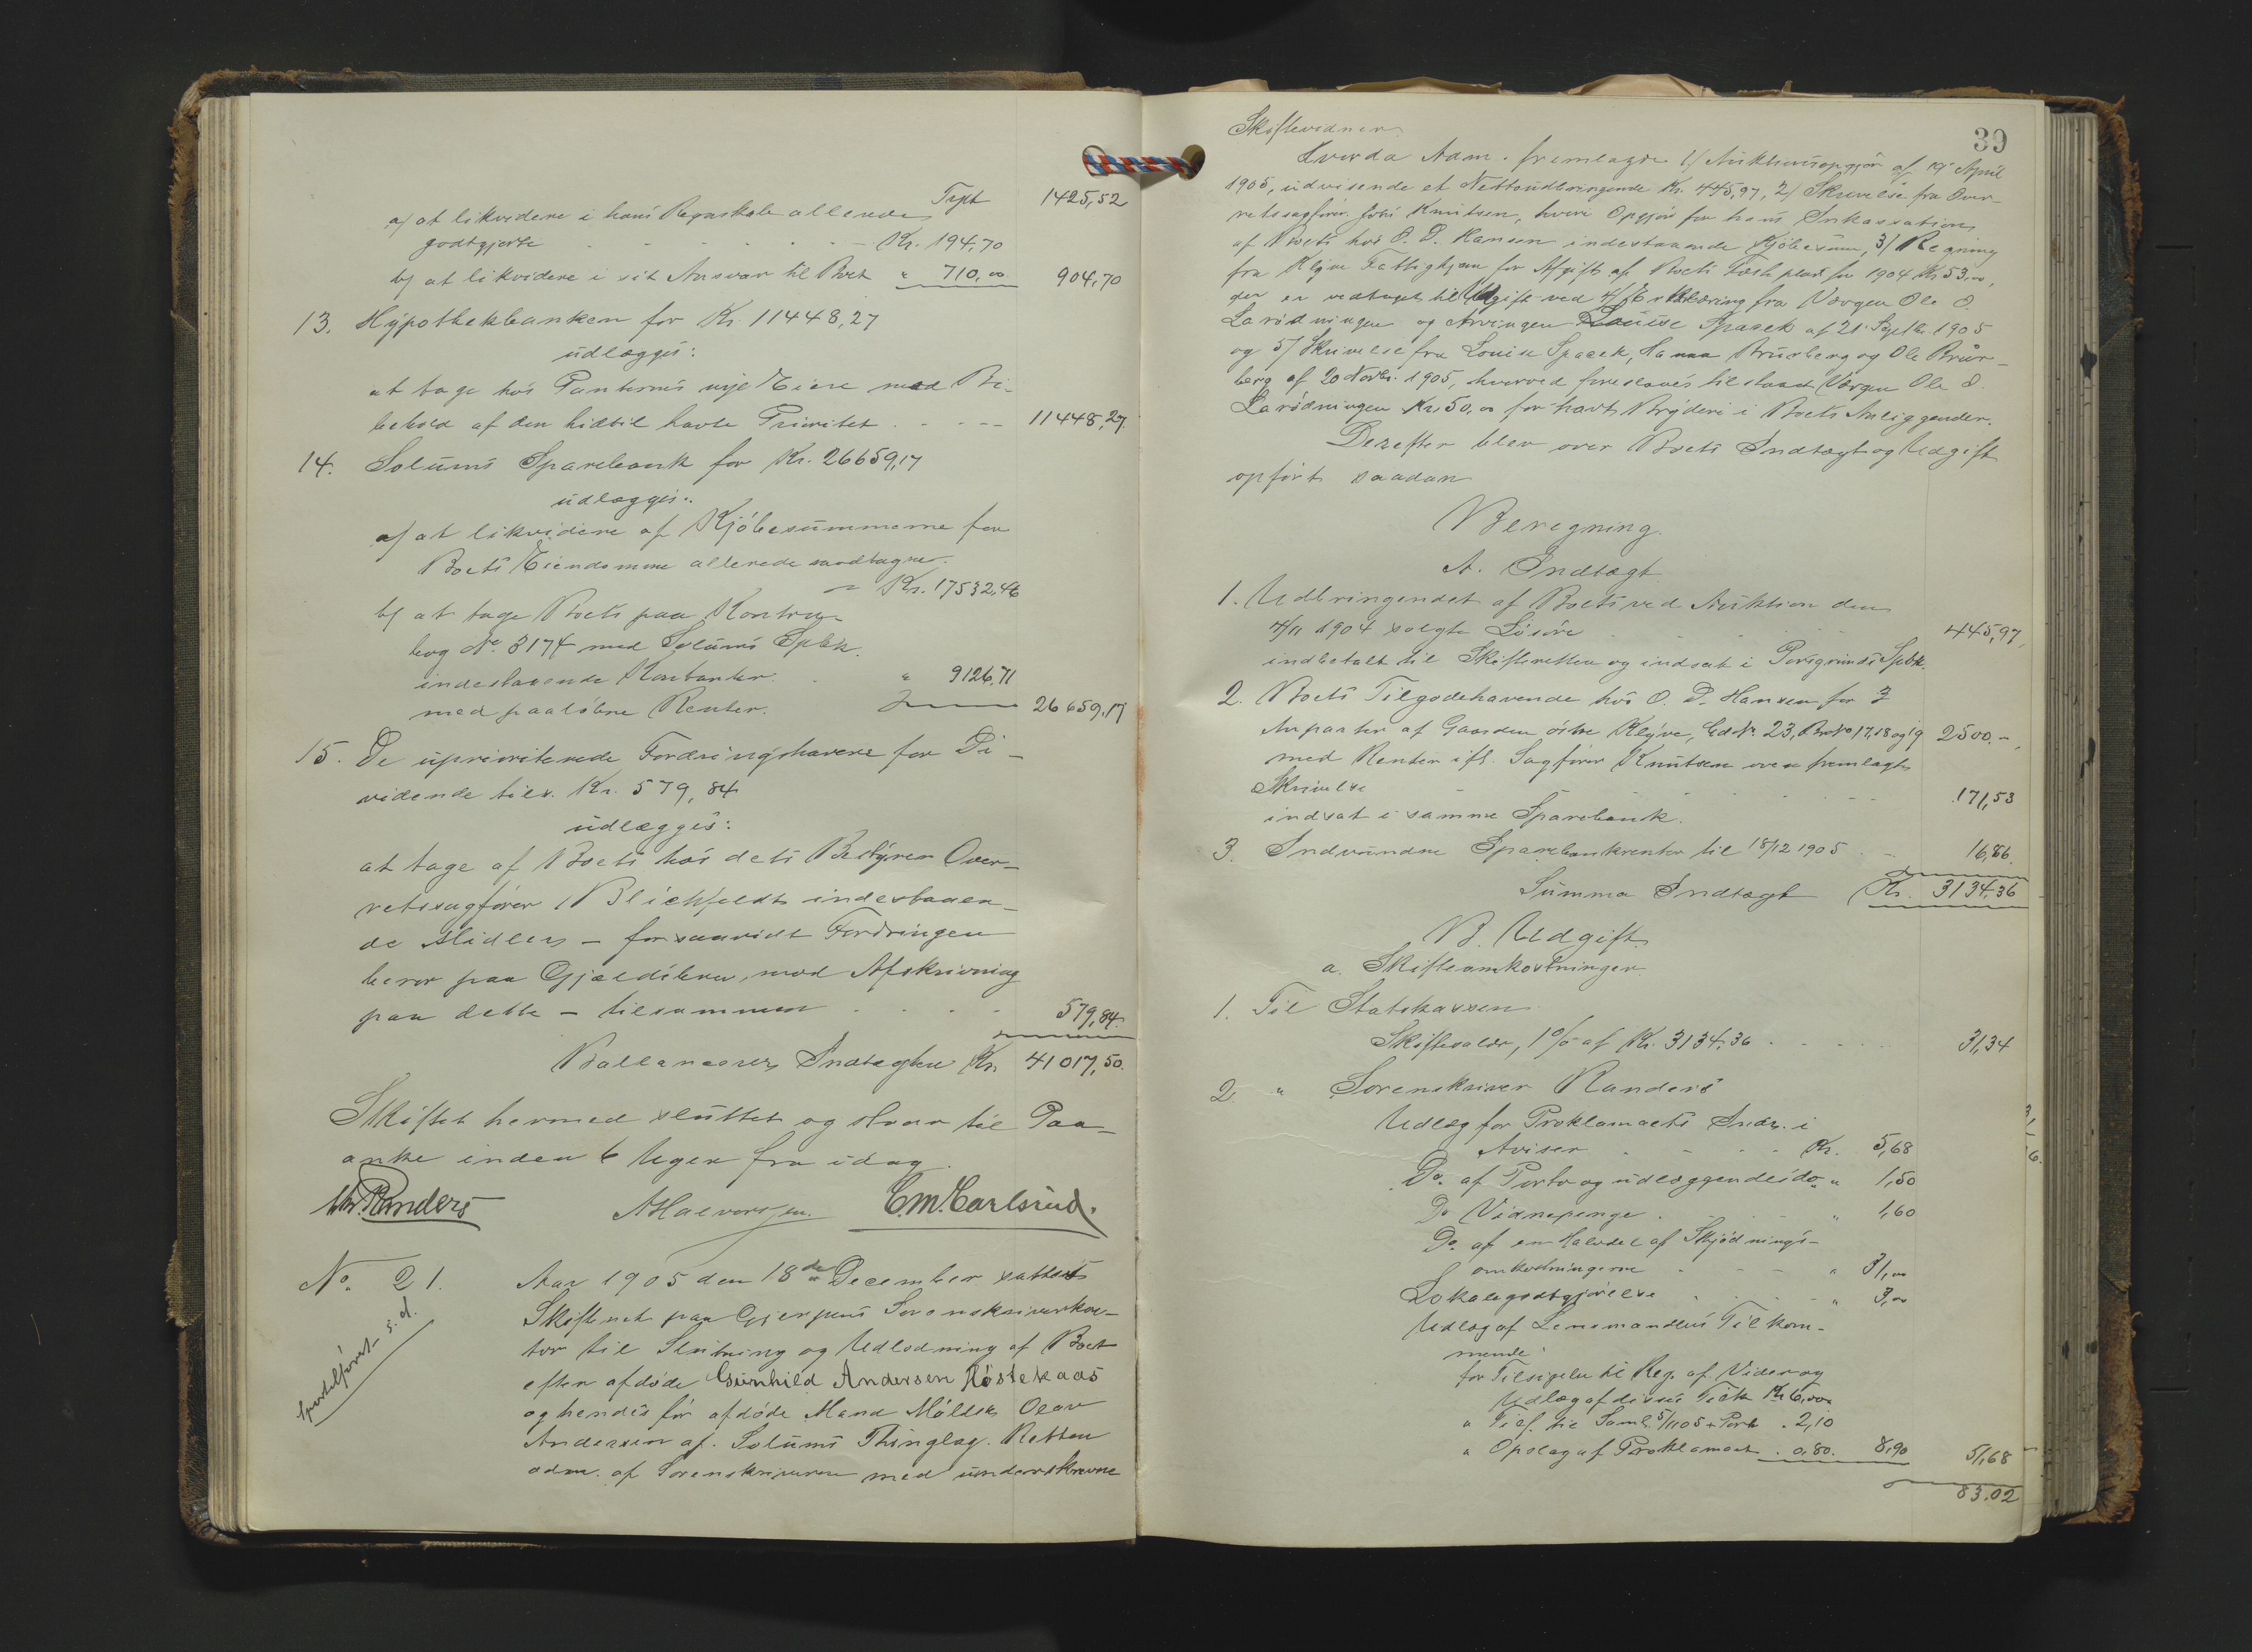 Tpt 1425,52
a/ at likvidere i hans Regnskab allerede
godtgjorte Kr. 194,70
b/ at likvidere i sit Ansvar til Boet " 710,00 904,70
13. Hypothekbanken for Kr. 11448,27
udlægges:
at tage hos Panternes nye Eiere med Bi-
behold af den hidtil havte Prioritet 11448,27.
14. Solums Sparebank for Kr. 26659,17
udlægges:
a/ at likvidere af Kjöbesummerne for
Boets Eiendomme allerede modtagne
Kr. 17532,46
b/ at tage Boets paa Kontra-
bog No. 3174 med Solums Spbk.
indestaaende Kontanter " 9126,71
med paalöbne Renter. 26659,17
15. De uprioriterede Fordringshavere for Di-
vidende tils. Kr. 579,84
udlægges:
at tage af Boets hos dets Bestyrer Over-
retssagförer Blichfeldt indestaaen-
de Midler - forsaavidt Fordringen
beror paa Gjældsbrev, mod Afskrivning
paa dette - tilsammen 579,84.
Ballancerer Indtægten Kr. 41017,50.
Skiftet hermed sluttet og staar til Paa-
anke inden 6 Uger fra idag.
Randers AHalvorsen. C.M.Carlsrud.
No. 21. Aar 1905 den 18de December sattes
Skifteret paa Gjerpens Sorenskriverkon-
tor til Slutning og Udlodning af Boet
efter afdöde Gunhild Andersen Röstekaas
Sportelföret s.d.
og hendes för afdöde Mand Mölbk. Olav
Andersen af Solums Thinglag. Retten
adm. af Sorenskriveren med underskrevne
39
Skiftevidner.
Hvorda Adm. fremlagde 1/ Auktionsopgjör af April
1905, udvisende et Nettoudbringende Kr. 445,97, 2/ Skrivelse fra Over-
retssagförer Johs Knutsen, hvori Opgjör for hans Inkassation
af Boets hos O. P. Hansen indestaaende Kjöbesum, 3/ Regning
fra Klyve Fattighjem for Afgift af Boets Fæsteplads for 1904 Kr 53,00,
der er vedtaget til Udgift ved 4/ Erklæring fra Værgen Ole O.
Larödningen og Arvingen Louise Spaaek af 21 Septbr. 1905
og 5/ Skrivelse fra Louise Spaaek, Hanna Brusberg og Ole Brus-
berg af 20 Novbr. 1905, hvorved foreslaaes tilstaaet Værgen Ole O.
Larödningen Kr. 50,00 for havt Bryderi i Boets Anliggender.
Derefter blev over Boets Indtægt og Udgift
opfört saadan
Beregning.
A. Indtægt
1. Udbringendet af Boets ved Auktion den
4/11 1904 solgte Lösöre 445,97,
indbetalt til Skifteretten og indsat i Porsgrunds Spbk.
2. Boets Tilgodehavende hos O. P. Hansen for 3
Anparter af Gaarden östre Klyve, Gd No. 23, Br No 17, 18 og 19 2500,-,
med Renter ifl. Sagförer Knutsens oven fremlagte
Skrivelse 171,53
indsat i samme Sparebank.
3. Indvundne Sparebankrenter til 18/12 1905 16,86
Summa Indtægt Kr. 3134,36
B. Udgift.
a. Skifteomkostninger.
1. Til Statskassen
Skiftesalær, 1% af Kr. 3134,36 31,34
2. " Sorenskriver Randers
Udlæg for Proklamaets Indr. i
Aviser Kr. 5,68
Do. af Porto og udlæggendes do. " 1,50
Do Vidnepenge " 1,60
Do. af en Halvdel af Skjödnings-
omkostningerne " 31,00
Lokalegodtgjörelse " 3,00
Udlæg af Lensmandens Tilkom-
mende
for Tilsigelse til Reg. af Vidner og
Udlæg af disses Tilk. Kr. 6,00
" Tils. til Saml. 5/11 05 + Porto . 2,10
" Opslag af Proklamaet . 0,80. 8,90 51,68
83.02